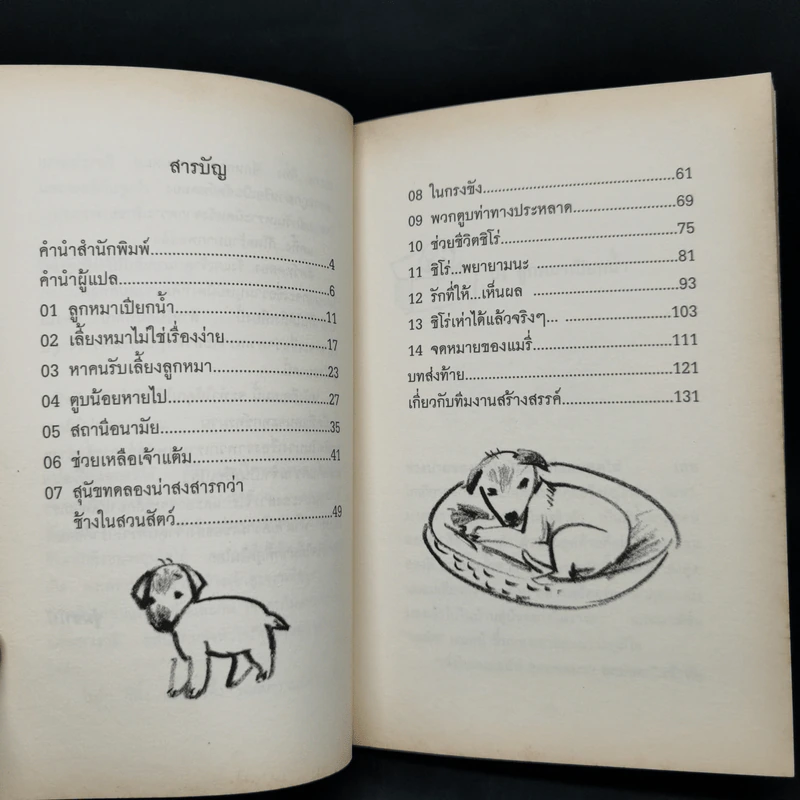 สารบัญ
คำนำสำนักพิมพ์....................................4
คำนำผู้แปล....................................6
01 ลูกหมาเปียกน้ำ....................................11
02 เลี้ยงหมาไม่ใช่เรื่องง่าย....................................17
03 หาคนรับเลี้ยงลูกหมา....................................23
04 ตูบน้อยหายไป....................................27
05 สถานีอนามัย....................................35
06 ช่วยเหลือเจ้าแต้ม....................................41
07 สุนัขทดลองน่าสงสารกว่า
ช้างในสวนสัตว์....................................49
08 ในกรงขัง....................................61
09 พวกตูบท่าทางประหลาด....................................69
10 ช่วยชีวิตชิโร่....................................75
11 ชิโร่...พยายามนะ ....................................81
12 รักที่ให้...เห็นผล ....................................93
13 ชิโร่เห่าได้แล้วจริงๆ... ....................................103
14 จดหมายของแมรี่....................................111
บทส่งท้าย....................................121
เกี่ยวกับทีมงานสร้างสรรค์....................................131